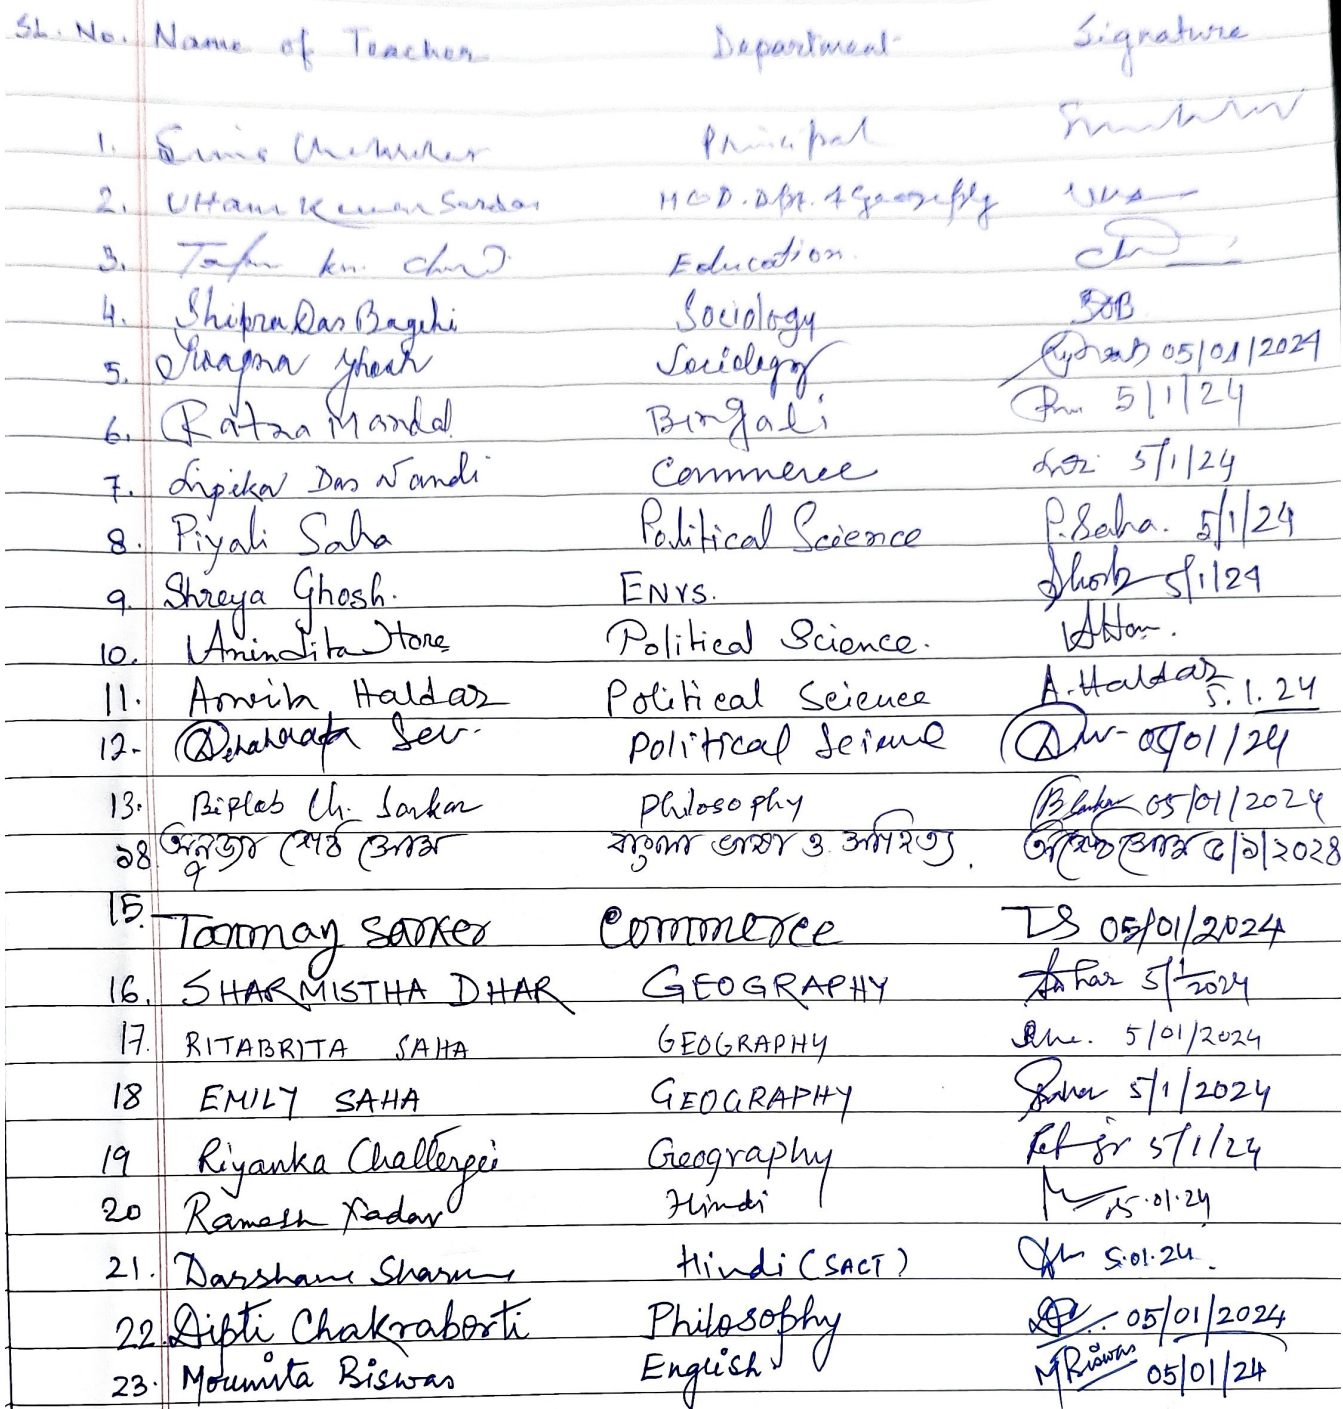 SL. No. Name of Teacher Department Signature
1. Principal
2. Uttam Kumar Sardar H.O.D. Dpt. of Geography
3. Tapan kr. Education.
4. Shipra Das Bagchi Sociology SDB
5. Swapna Ghosh Sociology 05/01/2024
6. Ratna Mandal Bengali 5/1/24
7. Lipika Das Nandi Commerce 5/1/24
8. Piyali Saha Political Science P. Saha. 5/1/24
9. Shreya Ghosh. ENVS. Ghosh 5/1/24
10. Anindita Hore Political Science. AHore.
11. Amrita Haldar Political Science A. Haldar 5.1.24
12. Debabrata Sen. Political Science 05/01/24
13. Biplab Ch. Sarkar Philosophy BSarkar 05/01/2024
১৪ বাংলা ভাষা ও সাহিত্য. ৫/১/২০২৪
15. Tanmay Sarker Commerce TS 05/01/2024
16. SHARMISTHA DHAR GEOGRAPHY Dhar 5/1/2024
17. RITABRITA SAHA GEOGRAPHY 5/01/2024
18 EMILY SAHA GEOGRAPHY Saha 5/1/2024
19 Riyanka Chatterjee Geography 5/1/24
20 Ramesh Yadav Hindi 5.01.24
21. Darshana Sharma Hindi (SACT) 5.01.24.
22. Dipti Chakraborti Philosophy 05/01/2024
23. Moumita Biswas English MBiswas 05/01/24